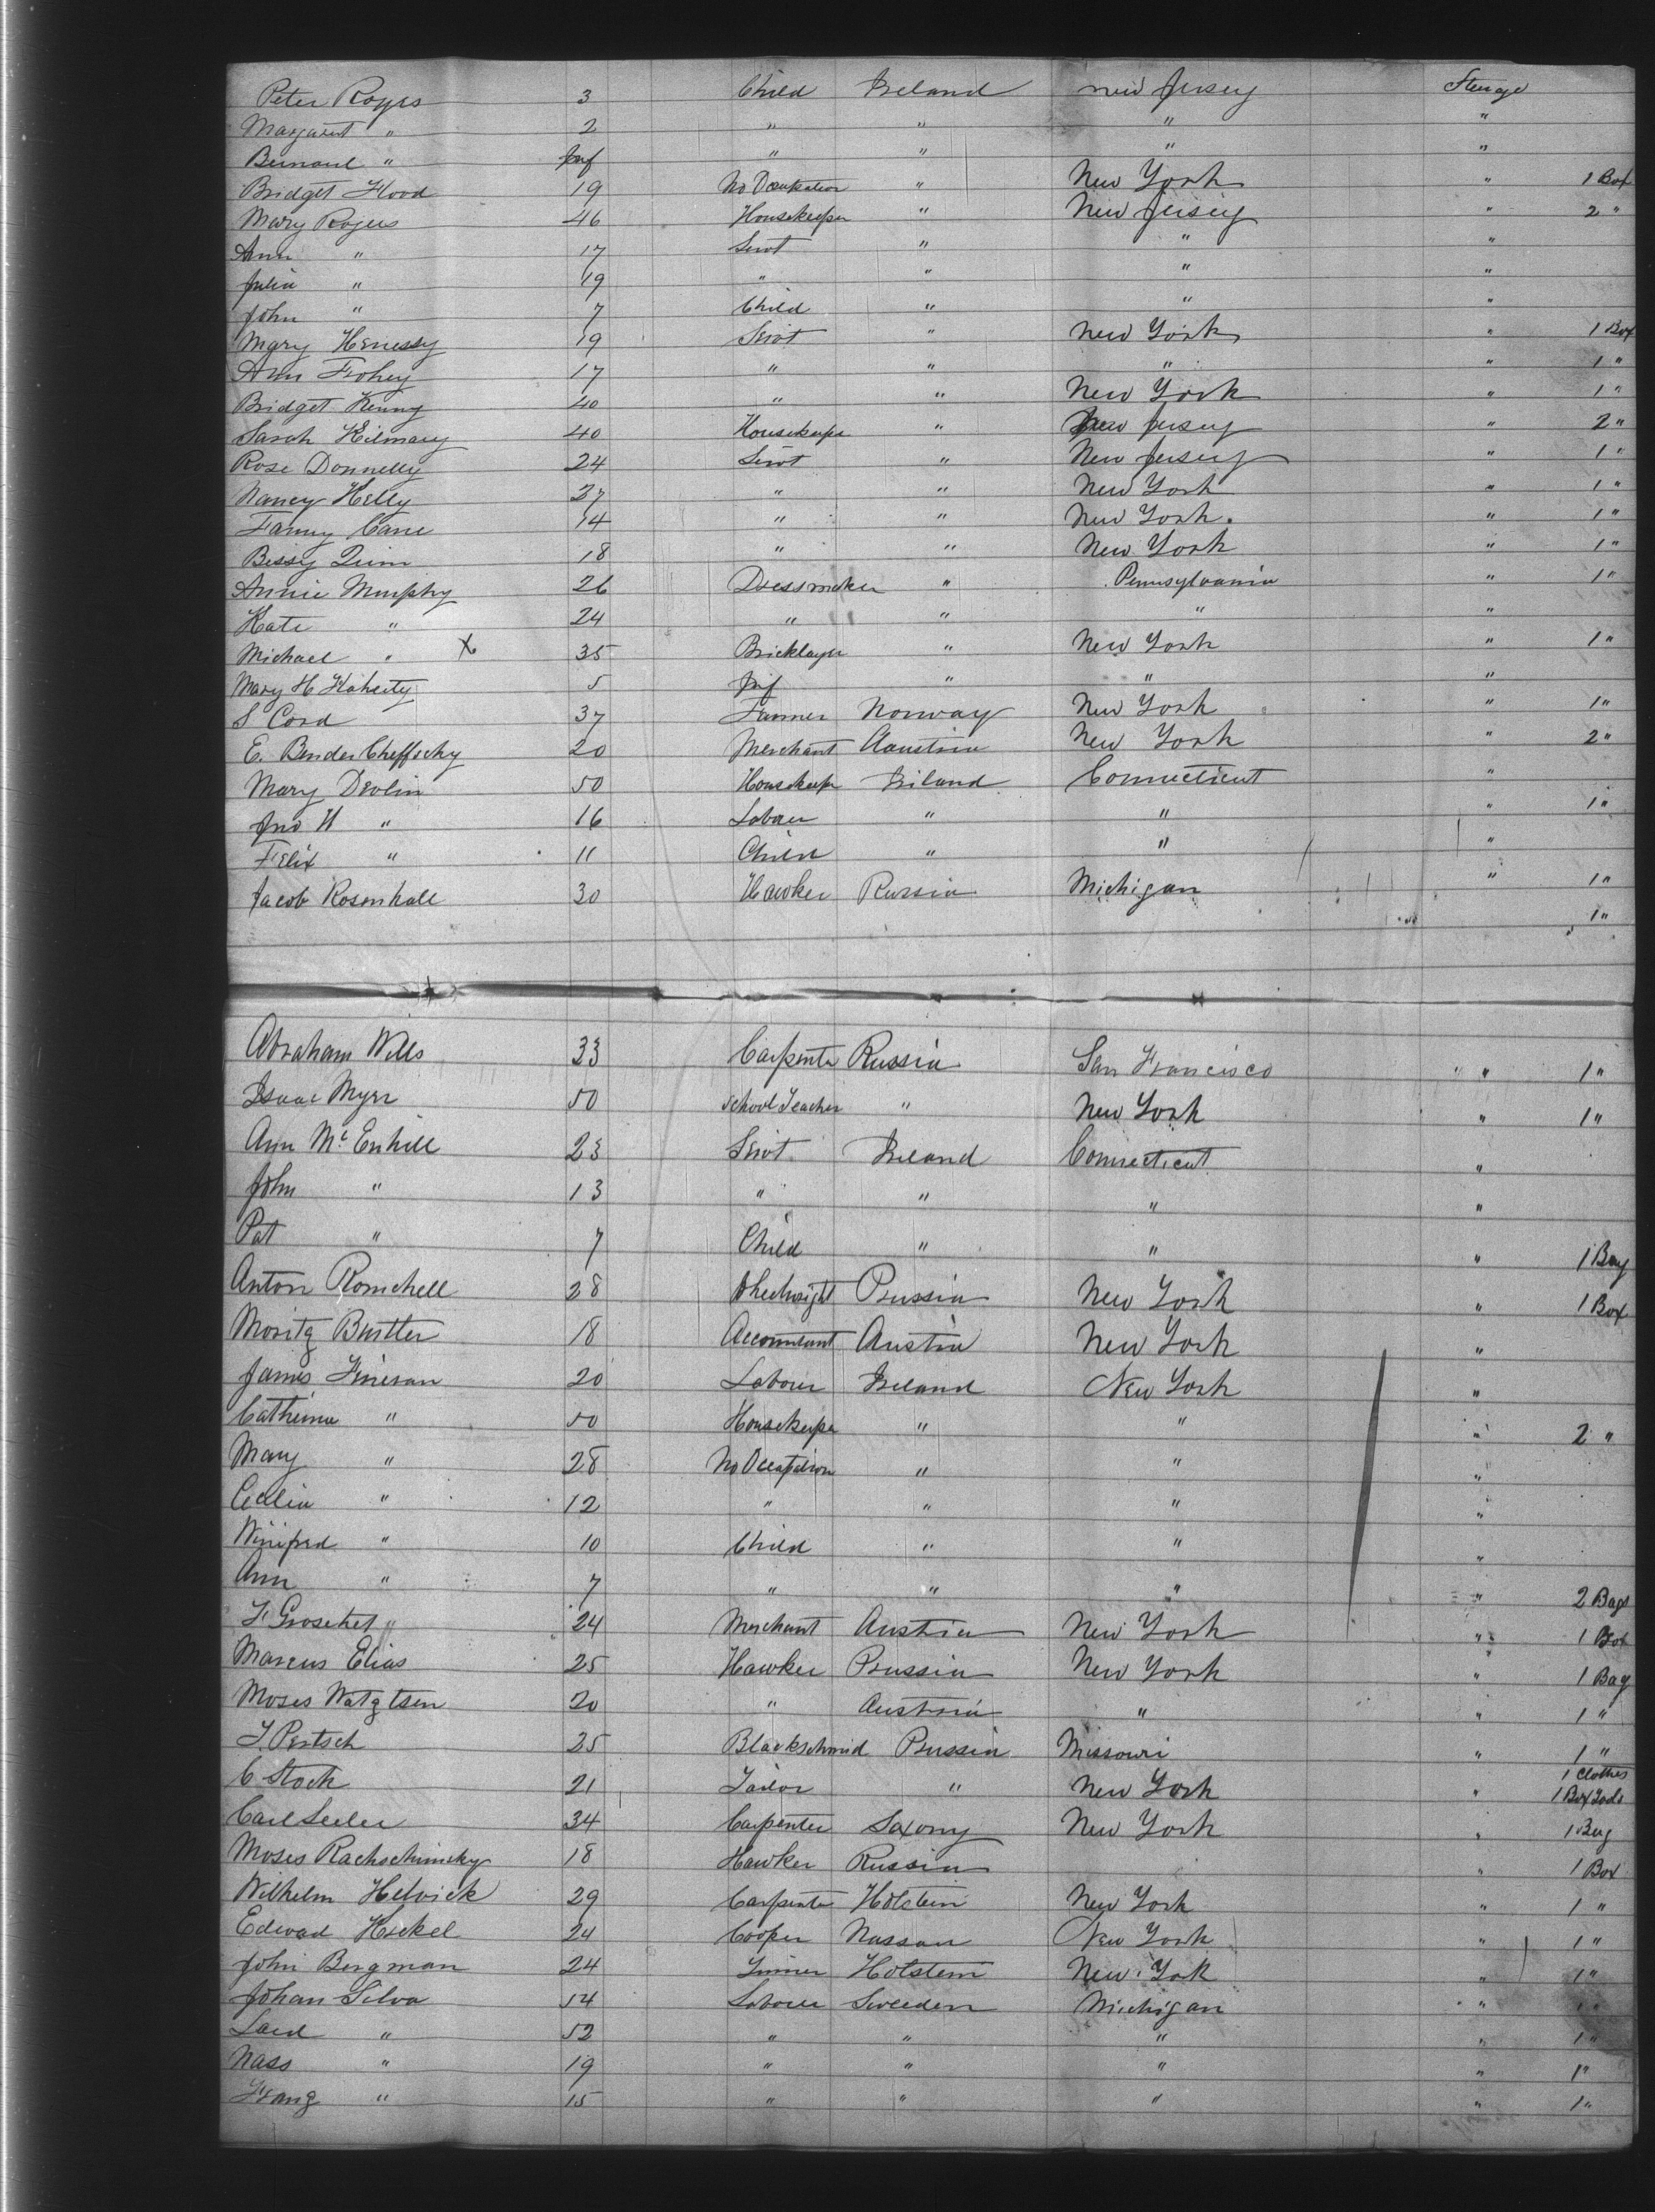 Peter Rogers 3 Child Ireland New Jersey Sterage
Margaret " 2 " " " "
Bernard " Inf " " " "
Bridget Flood 19 No Occupation " New York " 1 Box
Mary Rogers 46 Housekeeper " New Jersey " 2 "
Ann " 17 Servt " " "
Julia " 19 " " " "
John " 7 Child " " "
Mary Henessy 19 Servt " New York " 1 Box
Ann Fohey 17 " " " " 1 "
Bridget Kenny 40 " " New York " 1 "
Sarah Kilmary 40 Housekeeper " New Jersey " 2 "
Rose Donnelly 24 Servt " New Jersey " 1 "
Nancy Kelly 27 " " New York " 1 "
Fanny Cane 14 " " New York. " 1 "
Bessy Quin 18 " " New York " 1 "
Annie Murphy 26 Dressmaker " Pennsylvania " 1 "
Kate " 24 " " " "
Michael " X 35 Bricklayer " New York " 1 "
Mary H Flaherty 5 Inf " " "
S Cord 37 Farmer Norway New York " 1 "
E. Bender Cheffschy 20 Merchant Aaustria New York " 2 "
Mary Devlin 50 Housekeeper Ireland Connecticut "
Jno H " 16 Labourer " " " 1 "
Felix " 11 Child " " "
Jacob Rosenhall 30 Hawker Russia Michigan " 1 "
1 "
Abraham Wills 33 Carpenter Russia San Francisco " 1 "
Isaac Myer 50 School Teacher " New York " 1 "
Ann McEnhill 23 Servt Ireland Connecticut "
John " 13 " " " "
Pat " 7 Child " " " 1 Bag
Anton Romchell 28 Wheelwright Prussia New York " 1 Box
Moritz Buttler 18 Accountant Austria New York "
James Fineran 20 Labourer Ireland New York "
Catherine " 50 Housekeeper " " " 2 "
Mary " 28 No Occupation " " "
Cecilia " 12 " " " "
Winifred " 10 Child " " "
Ann " 7 " " " " 2 Bags
F Groschel " 24 Merchant Austria New York " 1 Box
Marcus Elias 25 Hawker Prussia New York " 1 Bag
Moses Watztsen 20 " Austria " " 1 "
J. Pertsch 25 Blackschmid Prussia Missouri " 1 "
1 Clothes
C Stock 21 Tailor " New York " 1 Box Tools
Carl Seeler 34 Carpenter Saxony New York " 1 Bag
Moses Rachschimsky 18 Hawker Russia " 1 Box
Wilhelm Helvick 29 Carpenter Holstein New York " 1 "
Edward Heckel 24 Cooper Nassau New York " 1 "
John Bergman 24 Holstein New York " 1 "
Johan Silva 54 Labourer Sweeden Michigan " 1 "
Lard " 52 " " " " 1 "
Nass " 19 " " " " 1 "
Franz " 15 " " " " 1 "